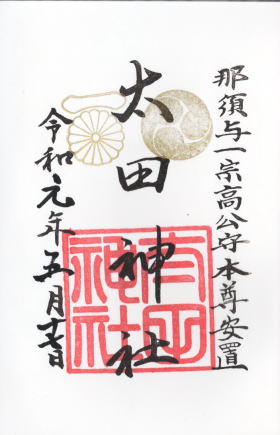 那須与一宗高公守本尊安置
太田神社
令和元年五月十七日
太田神社